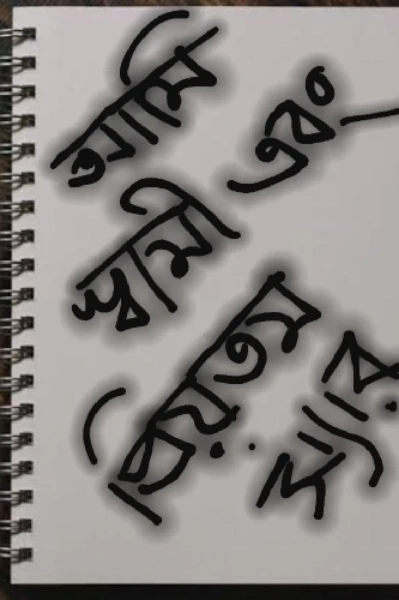 আমি এবং —
স্বামী
প্রিয়তম স্যার